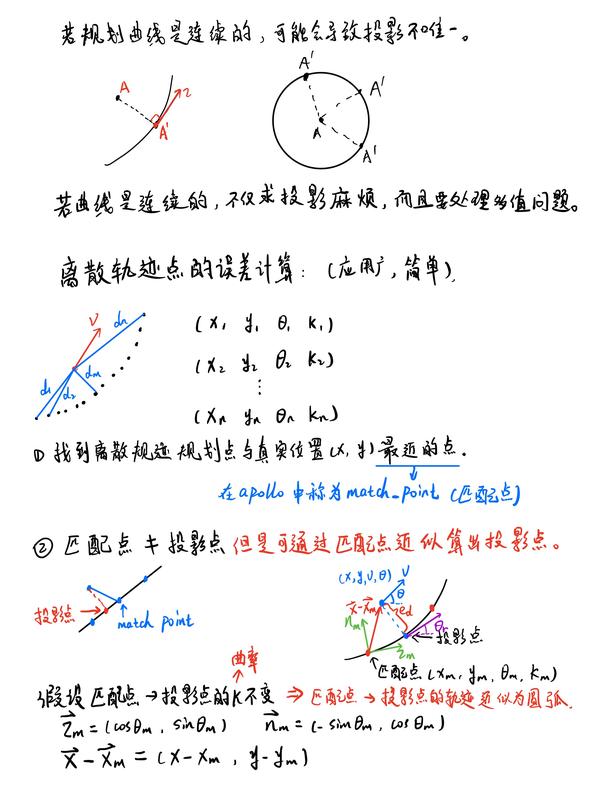 若规划曲线是连续的，可能会导致投影不唯一。
A
τ
A'
A'
A'
A
A'
若曲线是连续的，不仅求投影麻烦，而且要处理多值问题。
离散轨迹点的误差计算：(应用广，简单)
V
dn
d1
d2
dm
(x1 y1 θ1 k1)
(x2 y2 θ2 k2)
⋮
(xn yn θn kn)
① 找到离散规迹规划点与真实位置(x, y)最近的点。
在apollo中称为match_point (匹配点)
② 匹配点 ≠ 投影点 但是可通过匹配点近似算出投影点。
投影点
match point
(x, y, v, θ)
V
θ
x-xm
ed
nm
θr
投影点
τm
匹配点 (xm, ym, θm, km)
曲率
假设匹配点→投影点的K不变 ⇒ 匹配点→投影点的轨迹近似为圆弧.
τm = (cosθm, sinθm) nm = (-sinθm, cosθm)
x - xm = (x-xm, y-ym)